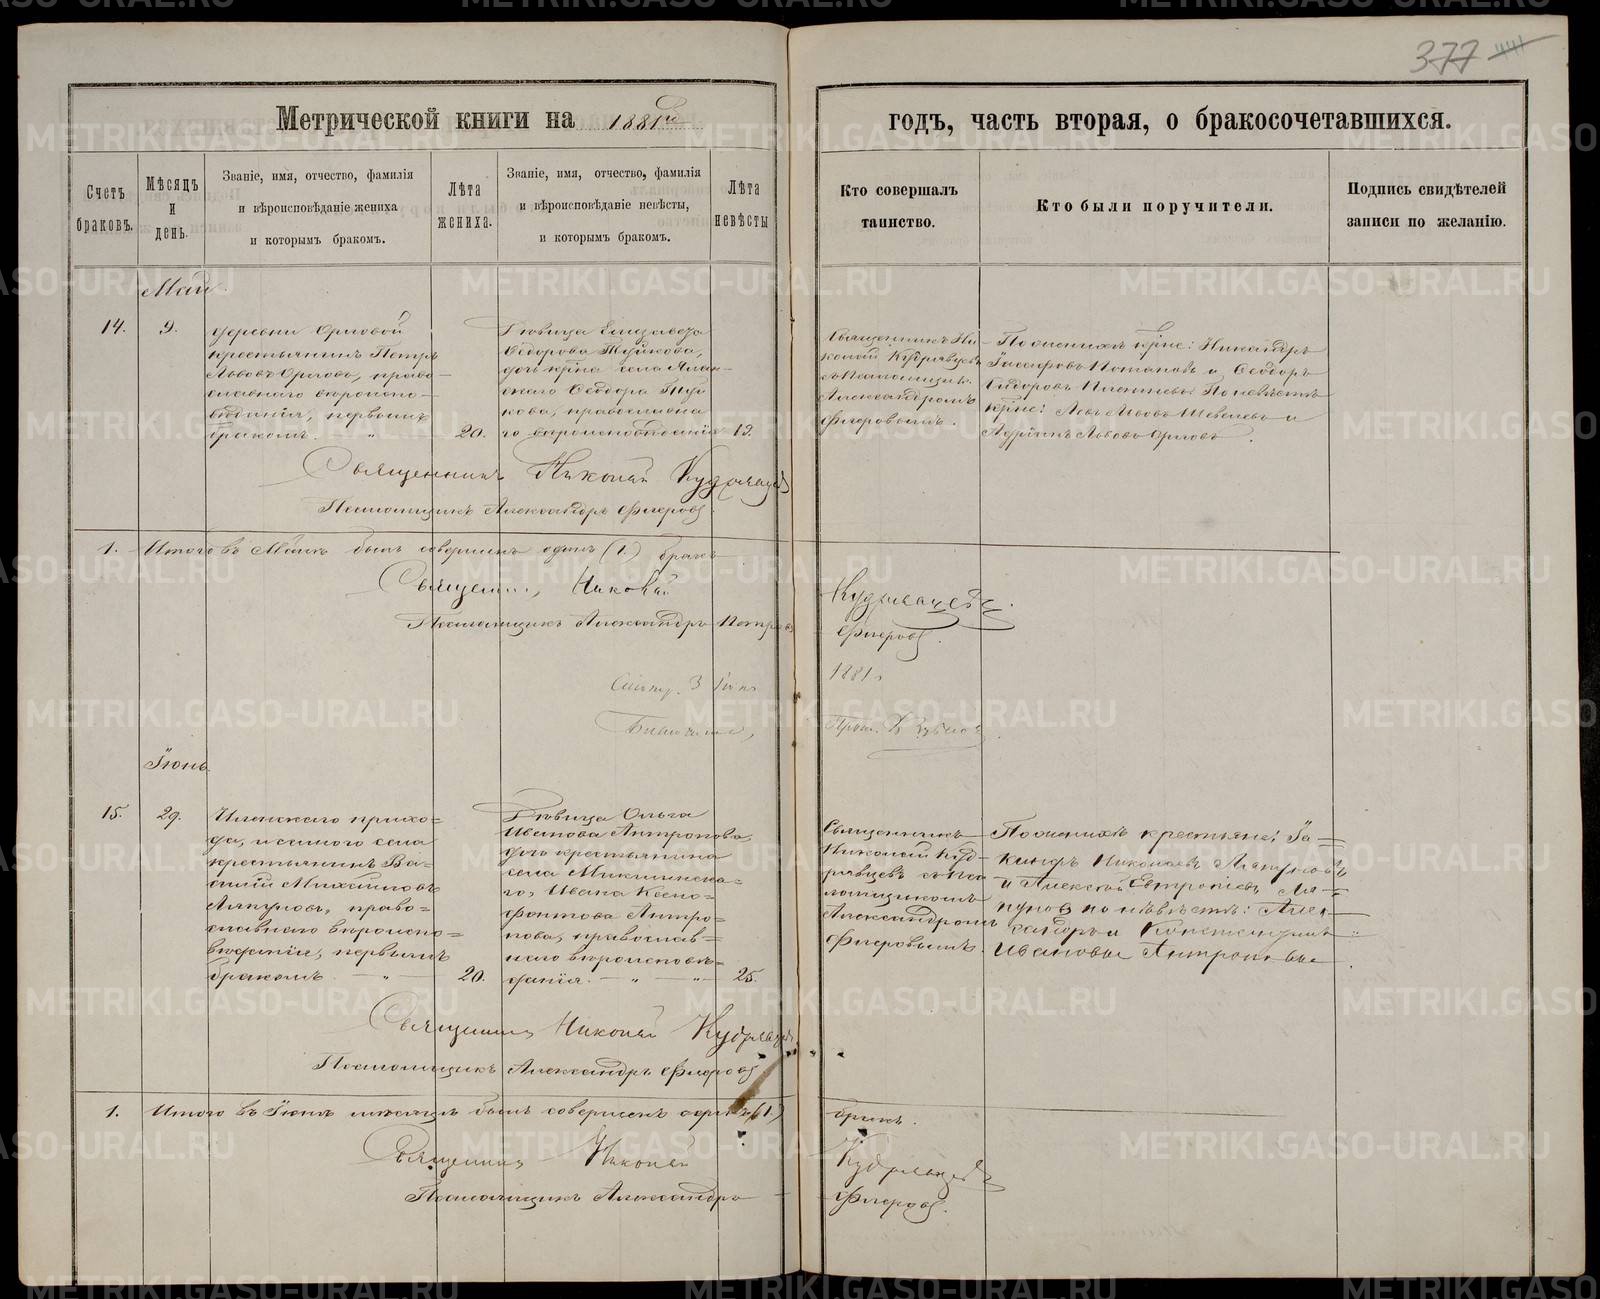 377
441
Метрической книги на 1881й
годъ, часть вторая, о бракосочетавшихся.
Счетъ браковъ.
Мѣсяцъ и день.
Званіе, имя, отчество, фамилія
и вѣроисповѣданіе жениха
и которымъ бракомъ.
Лѣта жениха.
Званіе, имя, отчество, фамилія
и вѣроисповѣданіе невѣсты,
и которымъ бракомъ.
Лѣта невѣсты
Кто совершалъ
таинство.
Кто были поручители.
Подпись свидѣтелей
записи по желанію.
Май
14.
9.
деревни Орловой
крестьянинъ Петръ
Львовъ Орловъ, право-
славнаго вѣроиспо-
вѣданія, первымъ
бракомъ.
20.
Дѣвица Елизавета
Ѳедорова
дочь крѣна села
Ѳеодора
кова, православна
го вѣроисповѣданія
19.
Священникъ Ни
колай Кудрявцевъ
съ Псаломщик.
Александромъ
Флеровымъ.
По женихѣ крѣне: Никандръ
Потаповъ и Ѳеодоръ
Сидоровъ По невѣстѣ
крѣне: Левъ Львовъ Шевелевъ и
Львовъ Орловъ.
Священникъ Николай Кудрявцевъ
Псаломщикъ Александръ Флеровъ.
1. Итого въ Маѣ былъ совершенъ одинъ (1.) бракъ
Священникъ Николай
Кудрявцевъ.
Псаломщикъ Александръ Петровъ
Флеровъ.
3 Іюня
1881 г
Благочинный,
Прот.
Іюнь.
15.
29.
прихо=
да, и самого села
крестьянинъ Ва=
силій Михайловъ
Ляпуновъ, право=
славнаго вѣроиспо=
вѣданія, первымъ
бракомъ.
20.
Дѣвица Ольга
Иванова Антропова,
дочь крестьянина
села
го, Ивана Ксено=
фонтова Антро=
пова, православ=
наго вѣроисповѣ=
данія.
25.
Священникъ
Николай Куд-
рявцевъ съ Пса
ломщикомъ
Александромъ
Флеровымъ.
По женихѣ крестьяне: Іа=
кинфъ Николаевъ Ляпуновъ
и Алексѣй Евтропіевъ Ля=
пуновъ по невѣстѣ: Алек
сандръ и Константинъ
Ивановы Антроповы
Священникъ Николай Кудрявцевъ
Псаломщикъ Александръ Флеровъ
1. Итого въ Іюнѣ мѣсяцѣ былъ совершенъ одинъ (1.)
бракъ.
Священникъ Николай
Кудрявцевъ
Псаломщикъ Александръ
Флеровъ.
METRIKI.GASO-URAL.RU